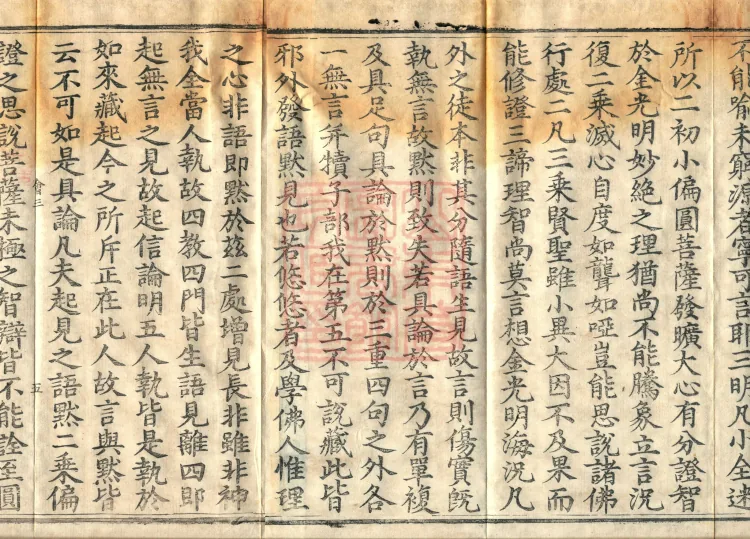 不能喻未窮源者寧可言耶三明凡小全迷
所以二初小偏圓菩薩發曠大心有分證智
於金光明妙絕之理猶尚不能騰象立言況
復二乘滅心自度如聾如啞豈能思說諸佛
行處二凡三乘賢聖雖小異大因不及果而
能修證三諦理智尚莫言想金光明海況凡
外之徒本非其分隨語生見故言則傷實旣
執無言故默則致失若具論於言乃有單複
及具足句具論於默則於三重四句之外各
一無言幷犢子部我在第五不可說藏此皆
邪外發語默見也若悠悠者及學佛人惟理
之心非語即默於玆二處增見長非雖非神
我全當人執故四教四門皆生語見離四即
起無言之見故起信論明五人執皆是執於
如來藏起今之所斥正在此人故言與默皆
云不可如是具論凡夫起見之語默二乘偏
會三 五
證之思說菩薩未極之智辯皆不能詮至圓